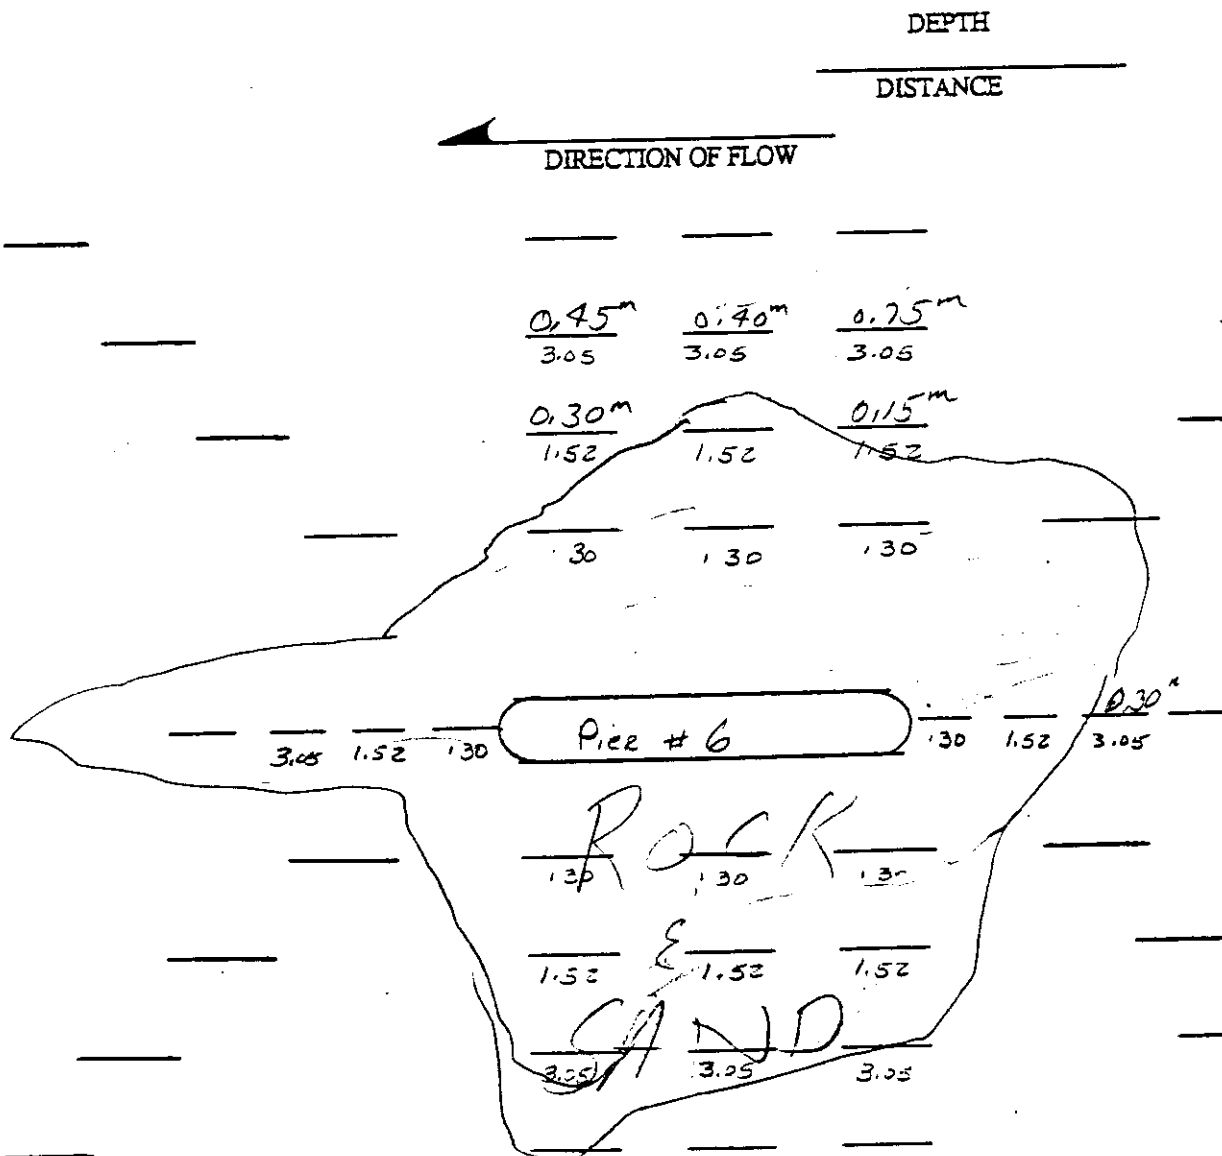 DEPTH
DISTANCE
DIRECTION OF FLOW
0.45m 0.40m 0.75m
3.05 3.05 3.05
0.30m 0.15m
1.52 1.52 1.52
.30 .30 .30
0.30
3.05 1.52 .30 Pier # 6 .30 1.52 3.05
ROCK
.30 .30
&
1.52 1.52 1.52
SAND
3.05 3.05 3.05